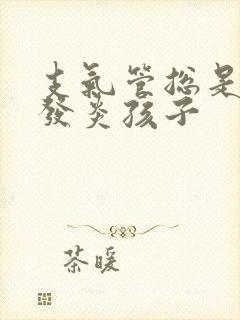 支氣管總是
發炎孩子
茶暖